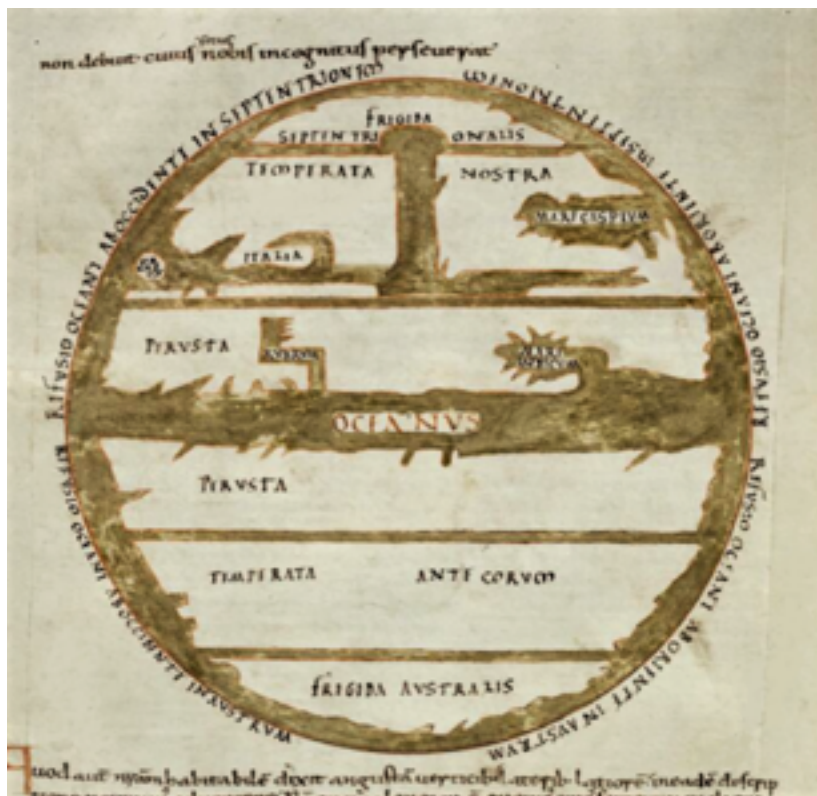 non debuit cuius situs nobis incognitus perseverat
REFUSIO OCEANI AB OCCIDENTE IN SEPTENTRIONEM
REFUSIO OCEANI AB ORIENTE IN SEPTENTRIONEM
FRIGIDA
SEPTENTRI ONALIS
TEMPERATA NOSTRA
MARE CASPIUM
ITALIA
PERUSTA
RUBRUM
MARE
INDICUM
OCEANUS
PERUSTA
TEMPERATA ANTECORUM
FRIGIDA AUSTRALIS
REFUSIO OCEANI AB OCCIDENTE IN AUSTRUM
REFUSIO OCEANI AB ORIENTE IN AUSTRUM
Quod aute habitabile dixit angusta verticib laterib latiore in eade descrip